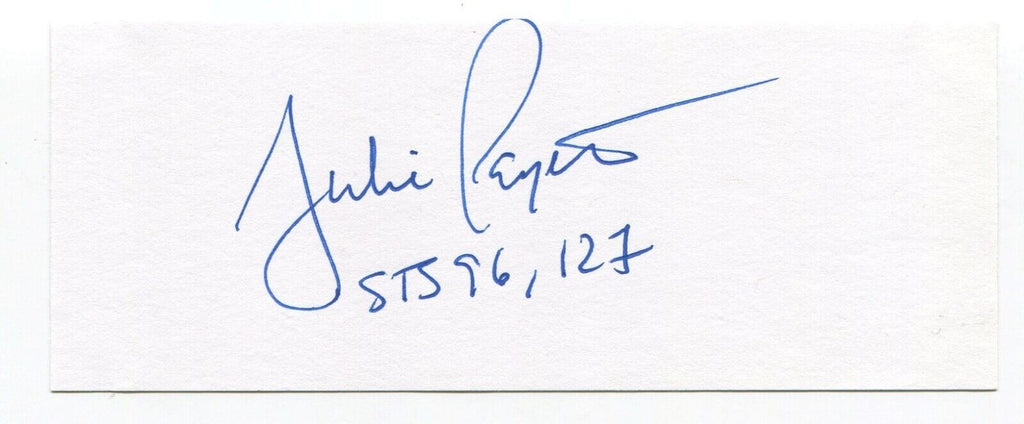 Julie Payette
STS 96, 127